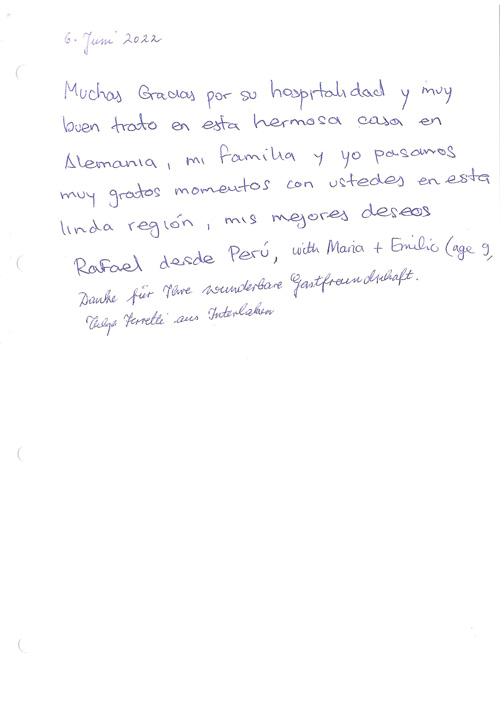 6. Juni 2022
Muchas Gracias por su hospitalidad y muy
buen trato en esta hermosa casa en
Alemania, mi familia y yo pasamos
muy gratos momentos con ustedes en esta
linda región, mis mejores deseos
Rafael desde Perú, with Maria + Emilio (age 9,
Danke für Ihre wunderbare Gastfreundschaft.
aus Interlaken